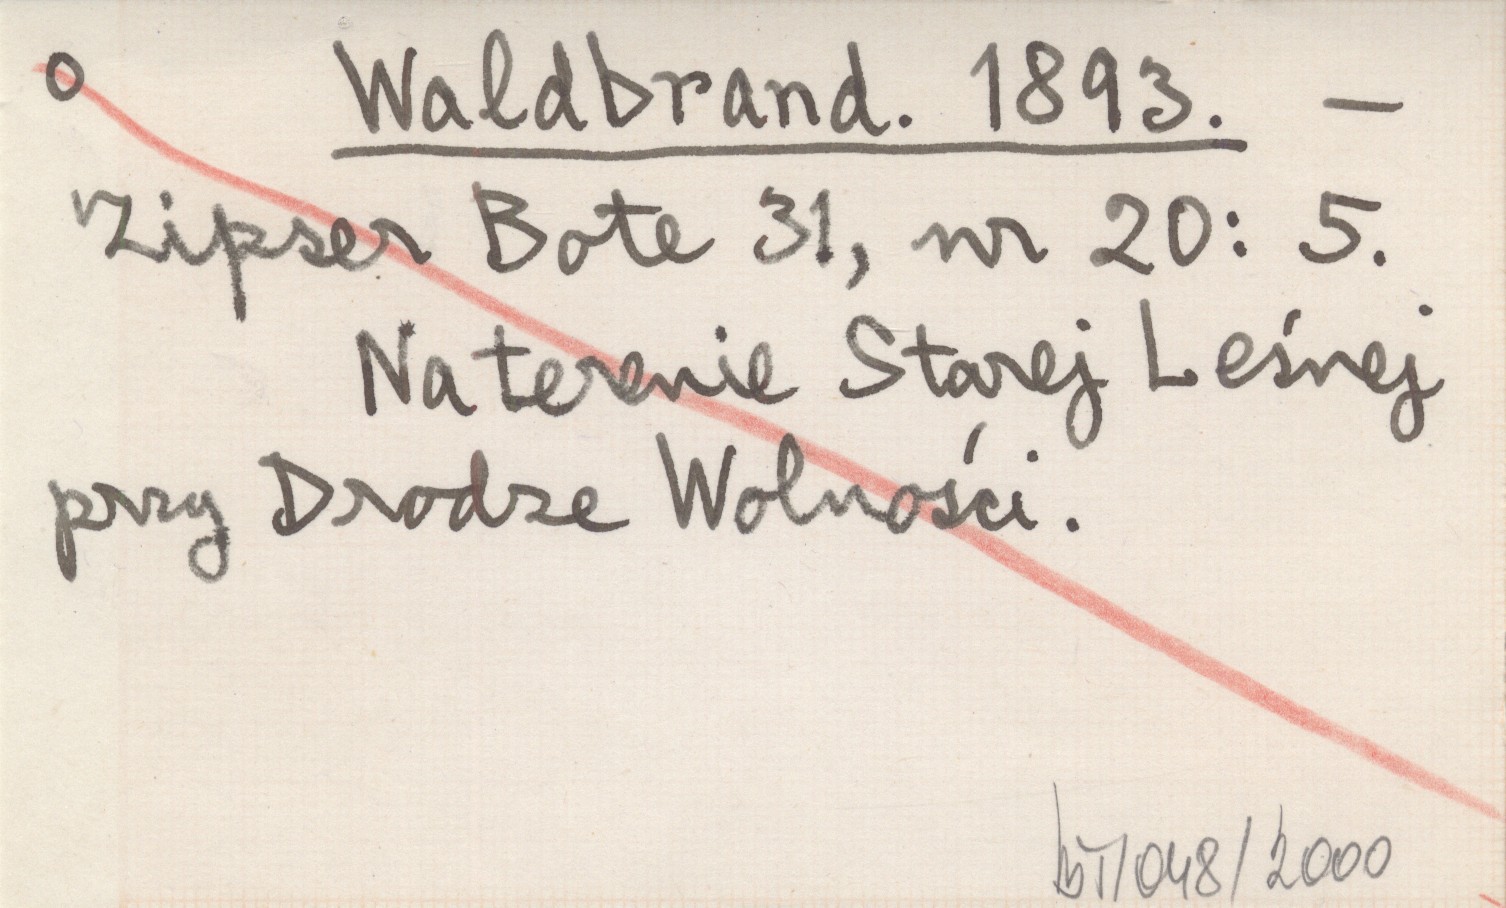 o Waldbrand. 1893. —
Zipser Bote 31, nr 20: 5.
Na terenie Starej Leśnej
przy Drodze Wolności.
bT/048/2000